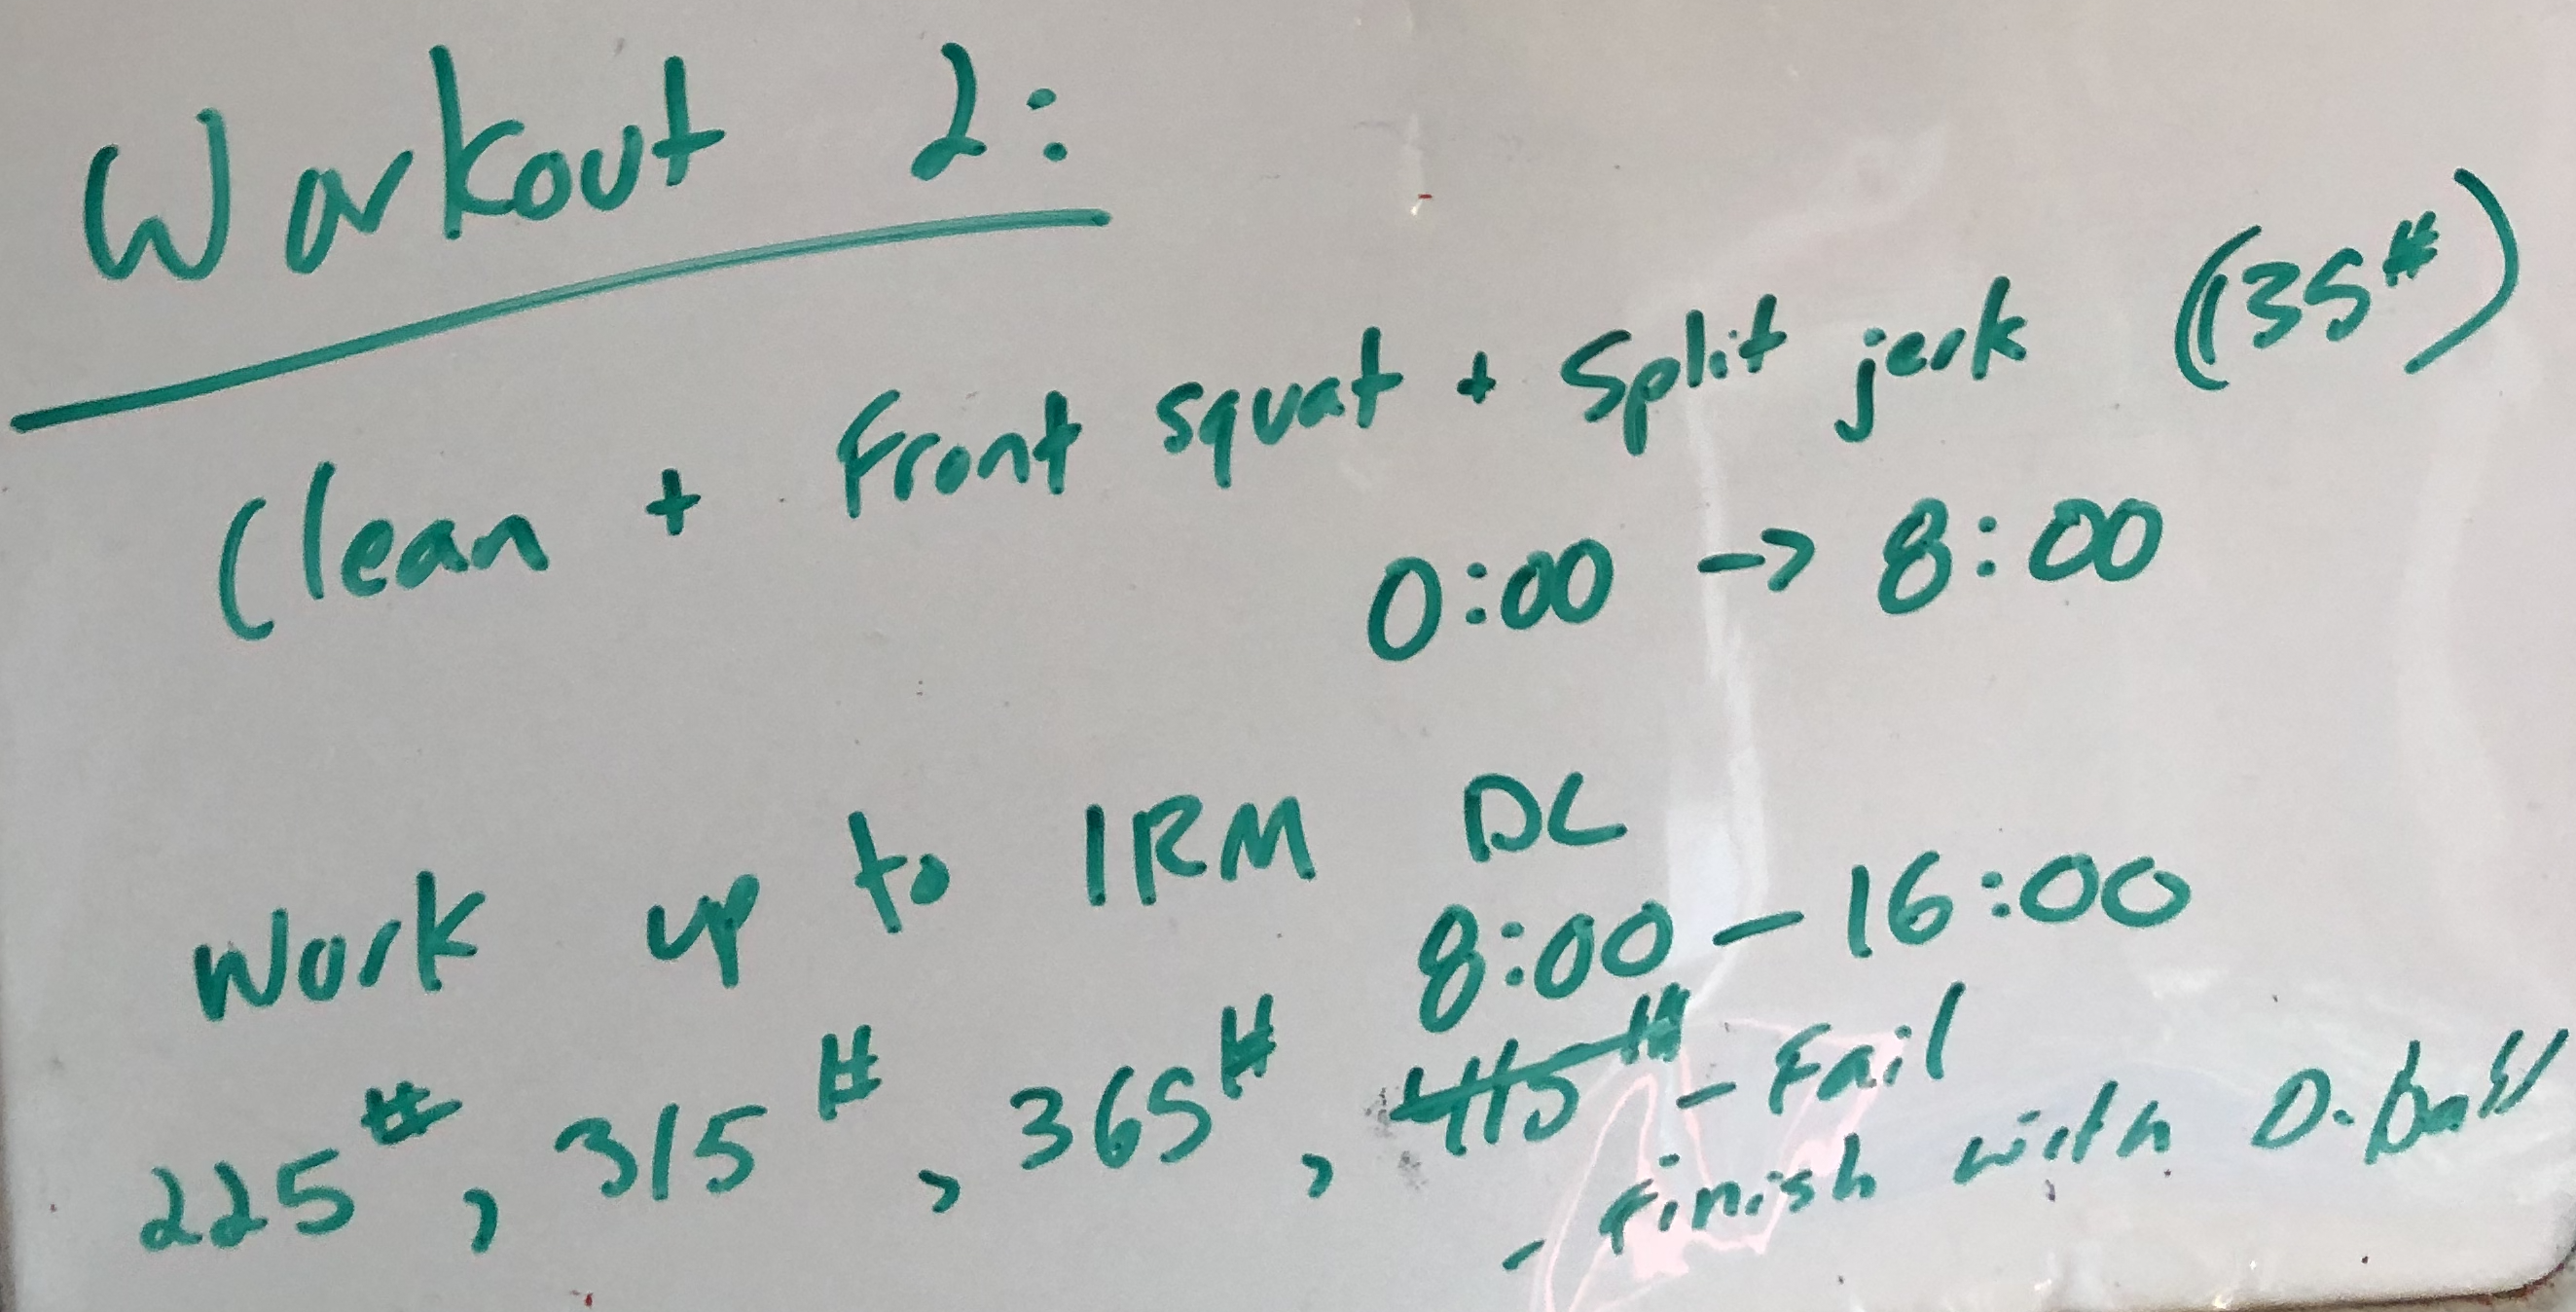 Workout 2:
Clean + Front squat + Split jerk (135#)
0:00 -> 8:00
Work up to 1RM DL
8:00 - 16:00
225#, 315#, 365#, 415# - Fail
- Finish with D-ball